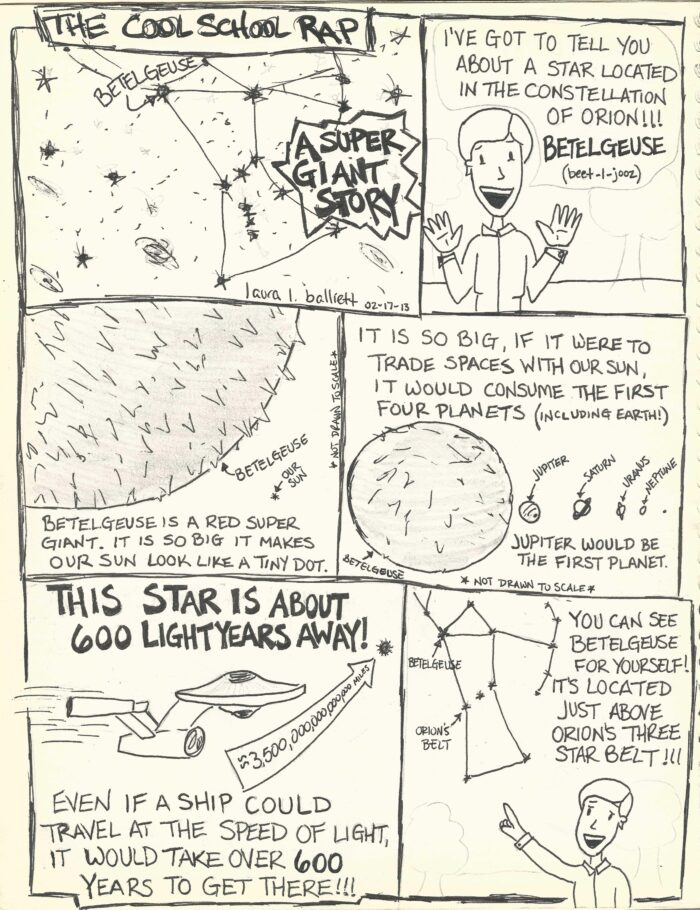 THE COOL SCHOOL RAP
BETELGEUSE
A SUPER
GIANT
STORY
laura l. ballrett 02-17-13
I'VE GOT TO TELL YOU
ABOUT A STAR LOCATED
IN THE CONSTELLATION
OF ORION!!!
BETELGEUSE
(beet-l-jooz)
*NOT DRAWN TO SCALE*
BETELGEUSE
OUR
SUN
BETELGEUSE IS A RED SUPER
GIANT. IT IS SO BIG IT MAKES
OUR SUN LOOK LIKE A TINY DOT.
IT IS SO BIG, IF IT WERE TO
TRADE SPACES WITH OUR SUN,
IT WOULD CONSUME THE FIRST
FOUR PLANETS (INCLUDING EARTH!)
JUPITER
SATURN
URANUS
NEPTUNE
JUPITER WOULD BE
THE FIRST PLANET.
BETELGEUSE
*NOT DRAWN TO SCALE*
THIS STAR IS ABOUT
600 LIGHTYEARS AWAY!
≈3,500,000,000,000,000 MILES
EVEN IF A SHIP COULD
TRAVEL AT THE SPEED OF LIGHT,
IT WOULD TAKE OVER 600
YEARS TO GET THERE!!!
BETELGEUSE
ORION'S
BELT
YOU CAN SEE
BETELGEUSE
FOR YOURSELF!
IT'S LOCATED
JUST ABOVE
ORION'S THREE
STAR BELT!!!